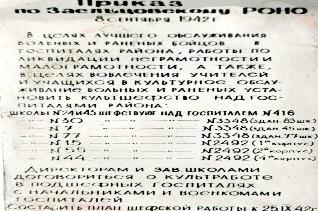 Приказ
по Заельцовскому РОНО
8 сентября 1942г
В целях лучшего обслуживания
больных и раненых бойцов в
госпиталях района, работы по
ликвидации неграмотности и
малограмотности, а также,
в целях вовлечения учителей
и учащихся в культурное обслу-
живание больных и раненых уста-
новить культшефство над гос-
питалями района:
школы №24и45 шефствуют над госпиталем №416
№30 №3348(здан. 83шк)
№17 №3348(здан 45шк)
№77 №3348(здан.77шк)
№15 №2492(1ый корпус)
№55 №2492(2ой корпус)
№44 №2492(4 корпус)
Директорам и зав.школами
договориться о культработе
в подшефных госпиталях
с начальниками и военкомами
госпиталей
Составить план шефской работы к 25.IX 42г